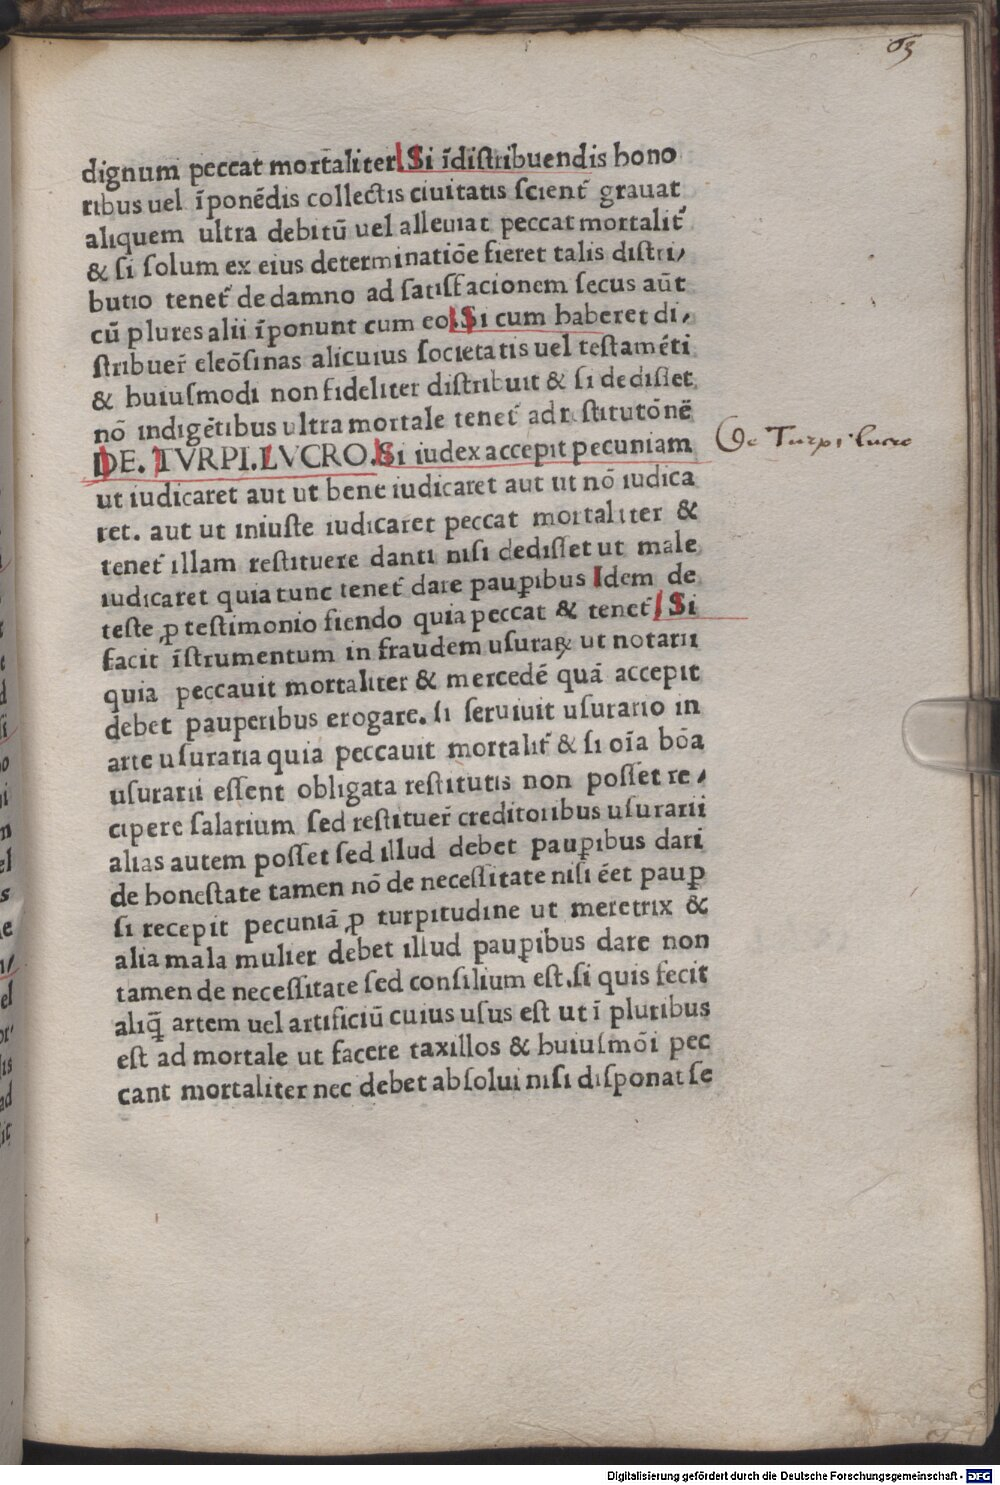 63
dignum peccat mortaliter Si īdistribuendis hono
ribus uel īponēdis collectis ciuitatis scient᷑ grauat
aliquem ultra debitū uel alleuiat peccat mortalit᷑
& si solum ex eius determinatiōe fieret talis distri⸗
butio tenet᷑ de damno ad satisfacionem secus aūt
cū plures alii īponunt cum eo. Si cum haberet di⸗
stribuer̄ eleōsinas alicuius societatis uel testamēti
& huiusmodi non fideliter distribuit & si dedisset
nō indigētibus ultra mortale tenet᷑ ad restitutōnē
DE. TVRPI. LVCRO. Si iudex accepit pecuniam
De Turpi lucro
ut iudicaret aut ut bene iudicaret aut ut nō iudica
ret. aut ut iniuste iudicaret peccat mortaliter &
tenet᷑ illam restituere danti nisi dedisset ut male
iudicaret quia tunc tenet᷑ dare paup̲ibus Idem de
teste p̲ testimonio fiendo quia peccat & tenet᷑ Si
facit īstrumentum in fraudem usuraꝝ ut notarii
quia peccauit mortaliter & mercedē quā accepit
debet pauperibus erogare. si seruiuit usurario in
arte usuraria quia peccauit mortalit᷑ & si oīa bōa
usurarii essent obligata restitutis non posset re⸗
cipere salarium sed restituer̄ creditoribus usurarii
alias autem posset sed illud debet paup̲ibus dari
de honestate tamen nō de necessitate nisi ēet paup̲
si recepit pecuniā p̲ turpitudine ut meretrix &
alia mala mulier debet illud paup̲ibus dare non
tamen de necessitate sed consilium est. si quis fecit
aliq̄ artem uel artificiū cuius usus est ut ī pluribus
est ad mortale ut facere taxillos & huiusmōi pec
cant mortaliter nec debet absolui nisi disponat se
Digitalisierung gefördert durch die Deutsche Forschungsgemeinschaft - DFG